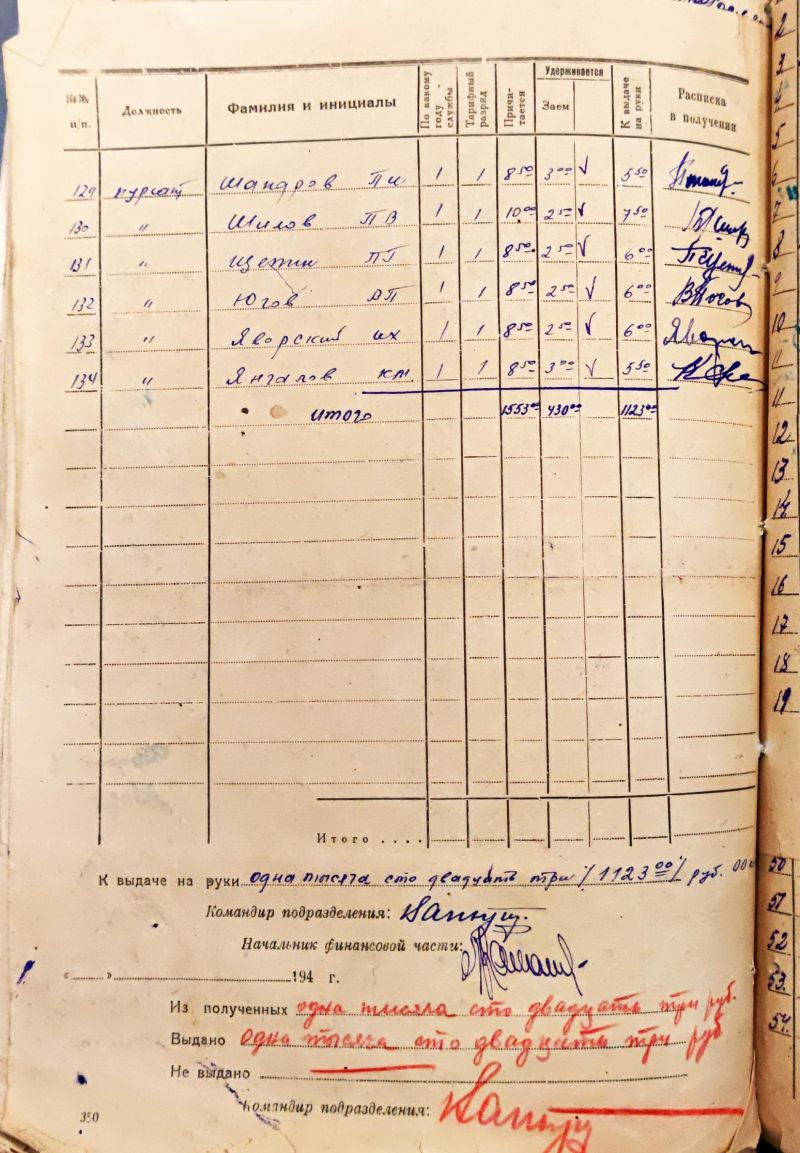 №№ п/п. Должность Фамилия и инициалы По какому году службы Тарифный разряд Причитается Удерживается Заем К выдаче на руки Расписка в получении
129 курсант Шапаров ПИ 1 1 8 50 3 00 √ 5 50
130 " Шилов ПВ 1 1 10 00 2 50 √ 7 50
131 " Щепин ПГ 1 1 8 50 2 50 √ 6 00
132 " Югов ВП 1 1 8 50 2 50 √ 6 00
133 " Яворский ИХ 1 1 8 50 2 50 √ 6 00
134 " Янгалов КМ 1 1 8 50 3 00 √ 5 50
итого 1553 00 430 00 1123 00
Итого ....
К выдаче на руки одна тысяча сто двадцать три /1123 00/ руб. 00
Командир подразделения:
Начальник финансовой части:
"......" 194 г.
Из полученных одна тысяча сто двадцать три руб.
Выдано одна тысяча сто двадцать три руб
Не выдано
Командир подразделения:
350
2
3
4
5
6
7
8
9
10
11
11
12
13
14
15
16
17
18
19
50
51
52
53.
54.